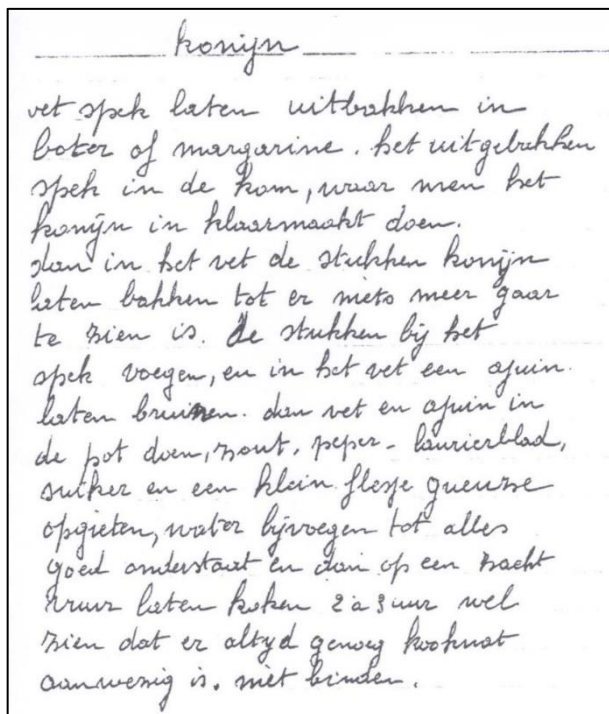 konijn
vet spek laten uitbakken in
boter of margarine. het uitgebakken
spek in de kom, waar men het
konijn in klaarmaakt doen.
dan in het vet de stukken konijn
laten bakken tot er niets meer gaar
te zien is. de stukken bij het
spek voegen, en in het vet een ajuin
laten bruinen. dan vet en ajuin in
de pot doen, zout, peper - laurierblad,
suiker en een klein flesje gueuze
opgieten, water bijvoegen tot alles
goed onderstaat en dan op een zacht
vuur laten koken 2 à 3 uur wel
zien dat er altyd genoeg kooknat
aanwezig is. niet binden.